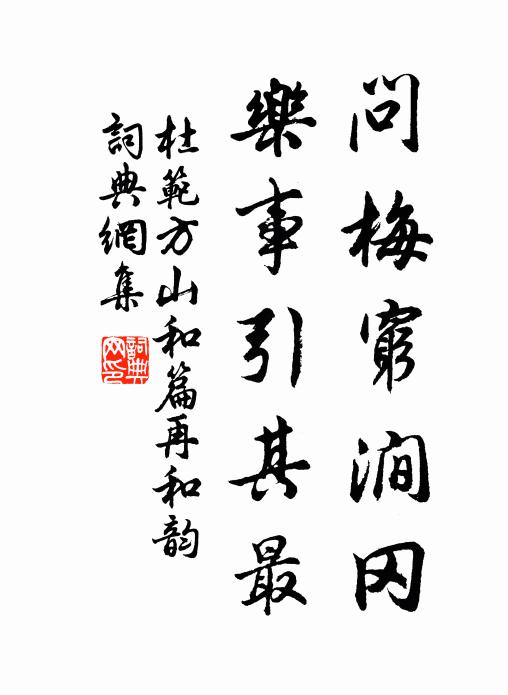 問梅窮澗冈
樂事引其最
杜範方山和篇再和韵
詞典網集
詞典網印